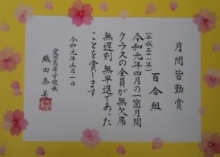 月間皆勤賞
百合組
(平成三一年)
令和元年四月の一箇月間
クラスの全員が無欠席
無遅刻無早退であった
ことを賞します
令和元年五月一日
高等学校長
織田奈美